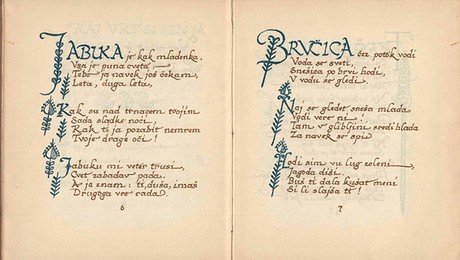 JABUKA je kak mladenka.
Vsa je puna cveta
Tebe ja navek još čekam
Leta, duga leta,
Kak su nad trnacem tvojim
Sada sladke noći,
Kak ti ja pozabit nemrem
Tvoje drage oči!
Jabuku mi veter trusi,
Cvet zabadav pada.
A ja znam: ti, duša, imaš
Drugoga vre rada.
6
BRVČICA čez potok vodi
Voda se sveti,
Snešica po brvi hodi,
V vodu se gledi.
Naj se gledet sneša mlada
Vodi vere ni!
Tam v gliblini, sredi hlada
Za navek se spi.
Hodi sim vu lug zeleni
Jagoda diši.
Buš ti dala kušat meni
Si li slajša ti!
7